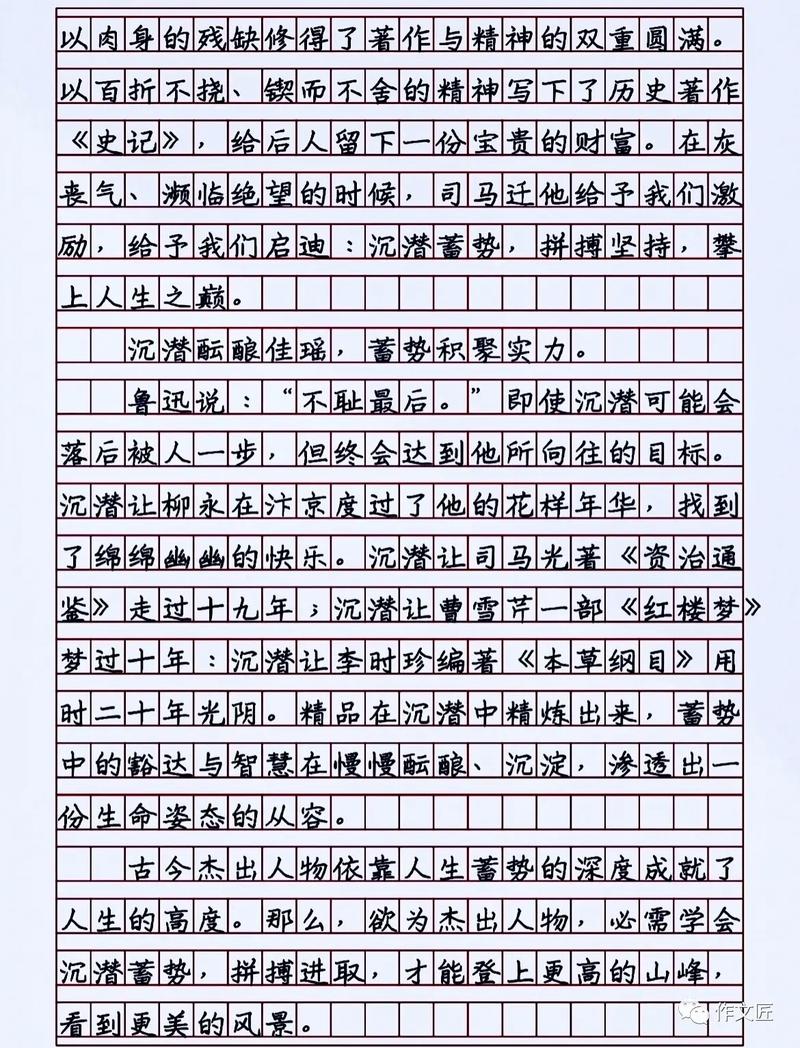 以肉身的残缺修得了著作与精神的双重圆满。
以百折不挠、锲而不舍的精神写下了历史著作
《史记》，给后人留下一份宝贵的财富。在灰
丧气、濒临绝望的时候，司马迁他给予我们激
励，给予我们启迪：沉潜蓄势，拼搏坚持，攀
上人生之巅。
沉潜酝酿佳瑶，蓄势积聚实力。
鲁迅说：“不耻最后。”即使沉潜可能会
落后被人一步，但终会达到他所向往的目标。
沉潜让柳永在汴京度过了他的花样年华，找到
了绵绵幽幽的快乐。沉潜让司马光著《资治通
鉴》走过十九年；沉潜让曹雪芹一部《红楼梦》
梦过十年：沉潜让李时珍编著《本草纲目》用
时二十年光阴。精品在沉潜中精炼出来，蓄势
中的豁达与智慧在慢慢酝酿、沉淀，渗透出一
份生命姿态的从容。
古今杰出人物依靠人生蓄势的深度成就了
人生的高度。那么，欲为杰出人物，必需学会
沉潜蓄势，拼搏进取，才能登上更高的山峰，
看到更美的风景。
作文匠